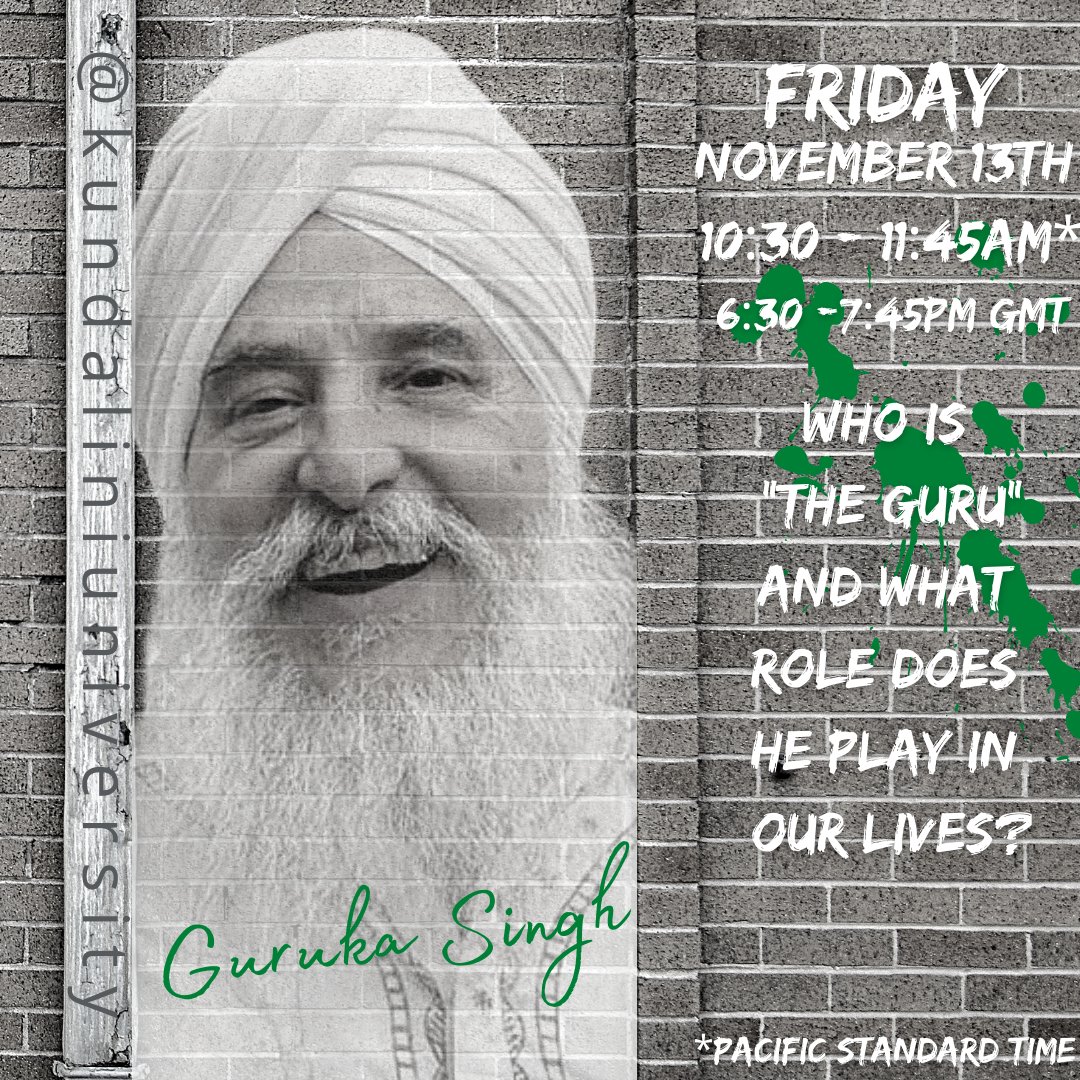 @kundaliniuniversity
FRIDAY
NOVEMBER 13TH
10:30 - 11:45AM*
6:30 -7:45PM GMT
WHO IS
"THE GURU"
AND WHAT
ROLE DOES
HE PLAY IN
OUR LIVES?
Guruka Singh
*PACIFIC STANDARD TIME